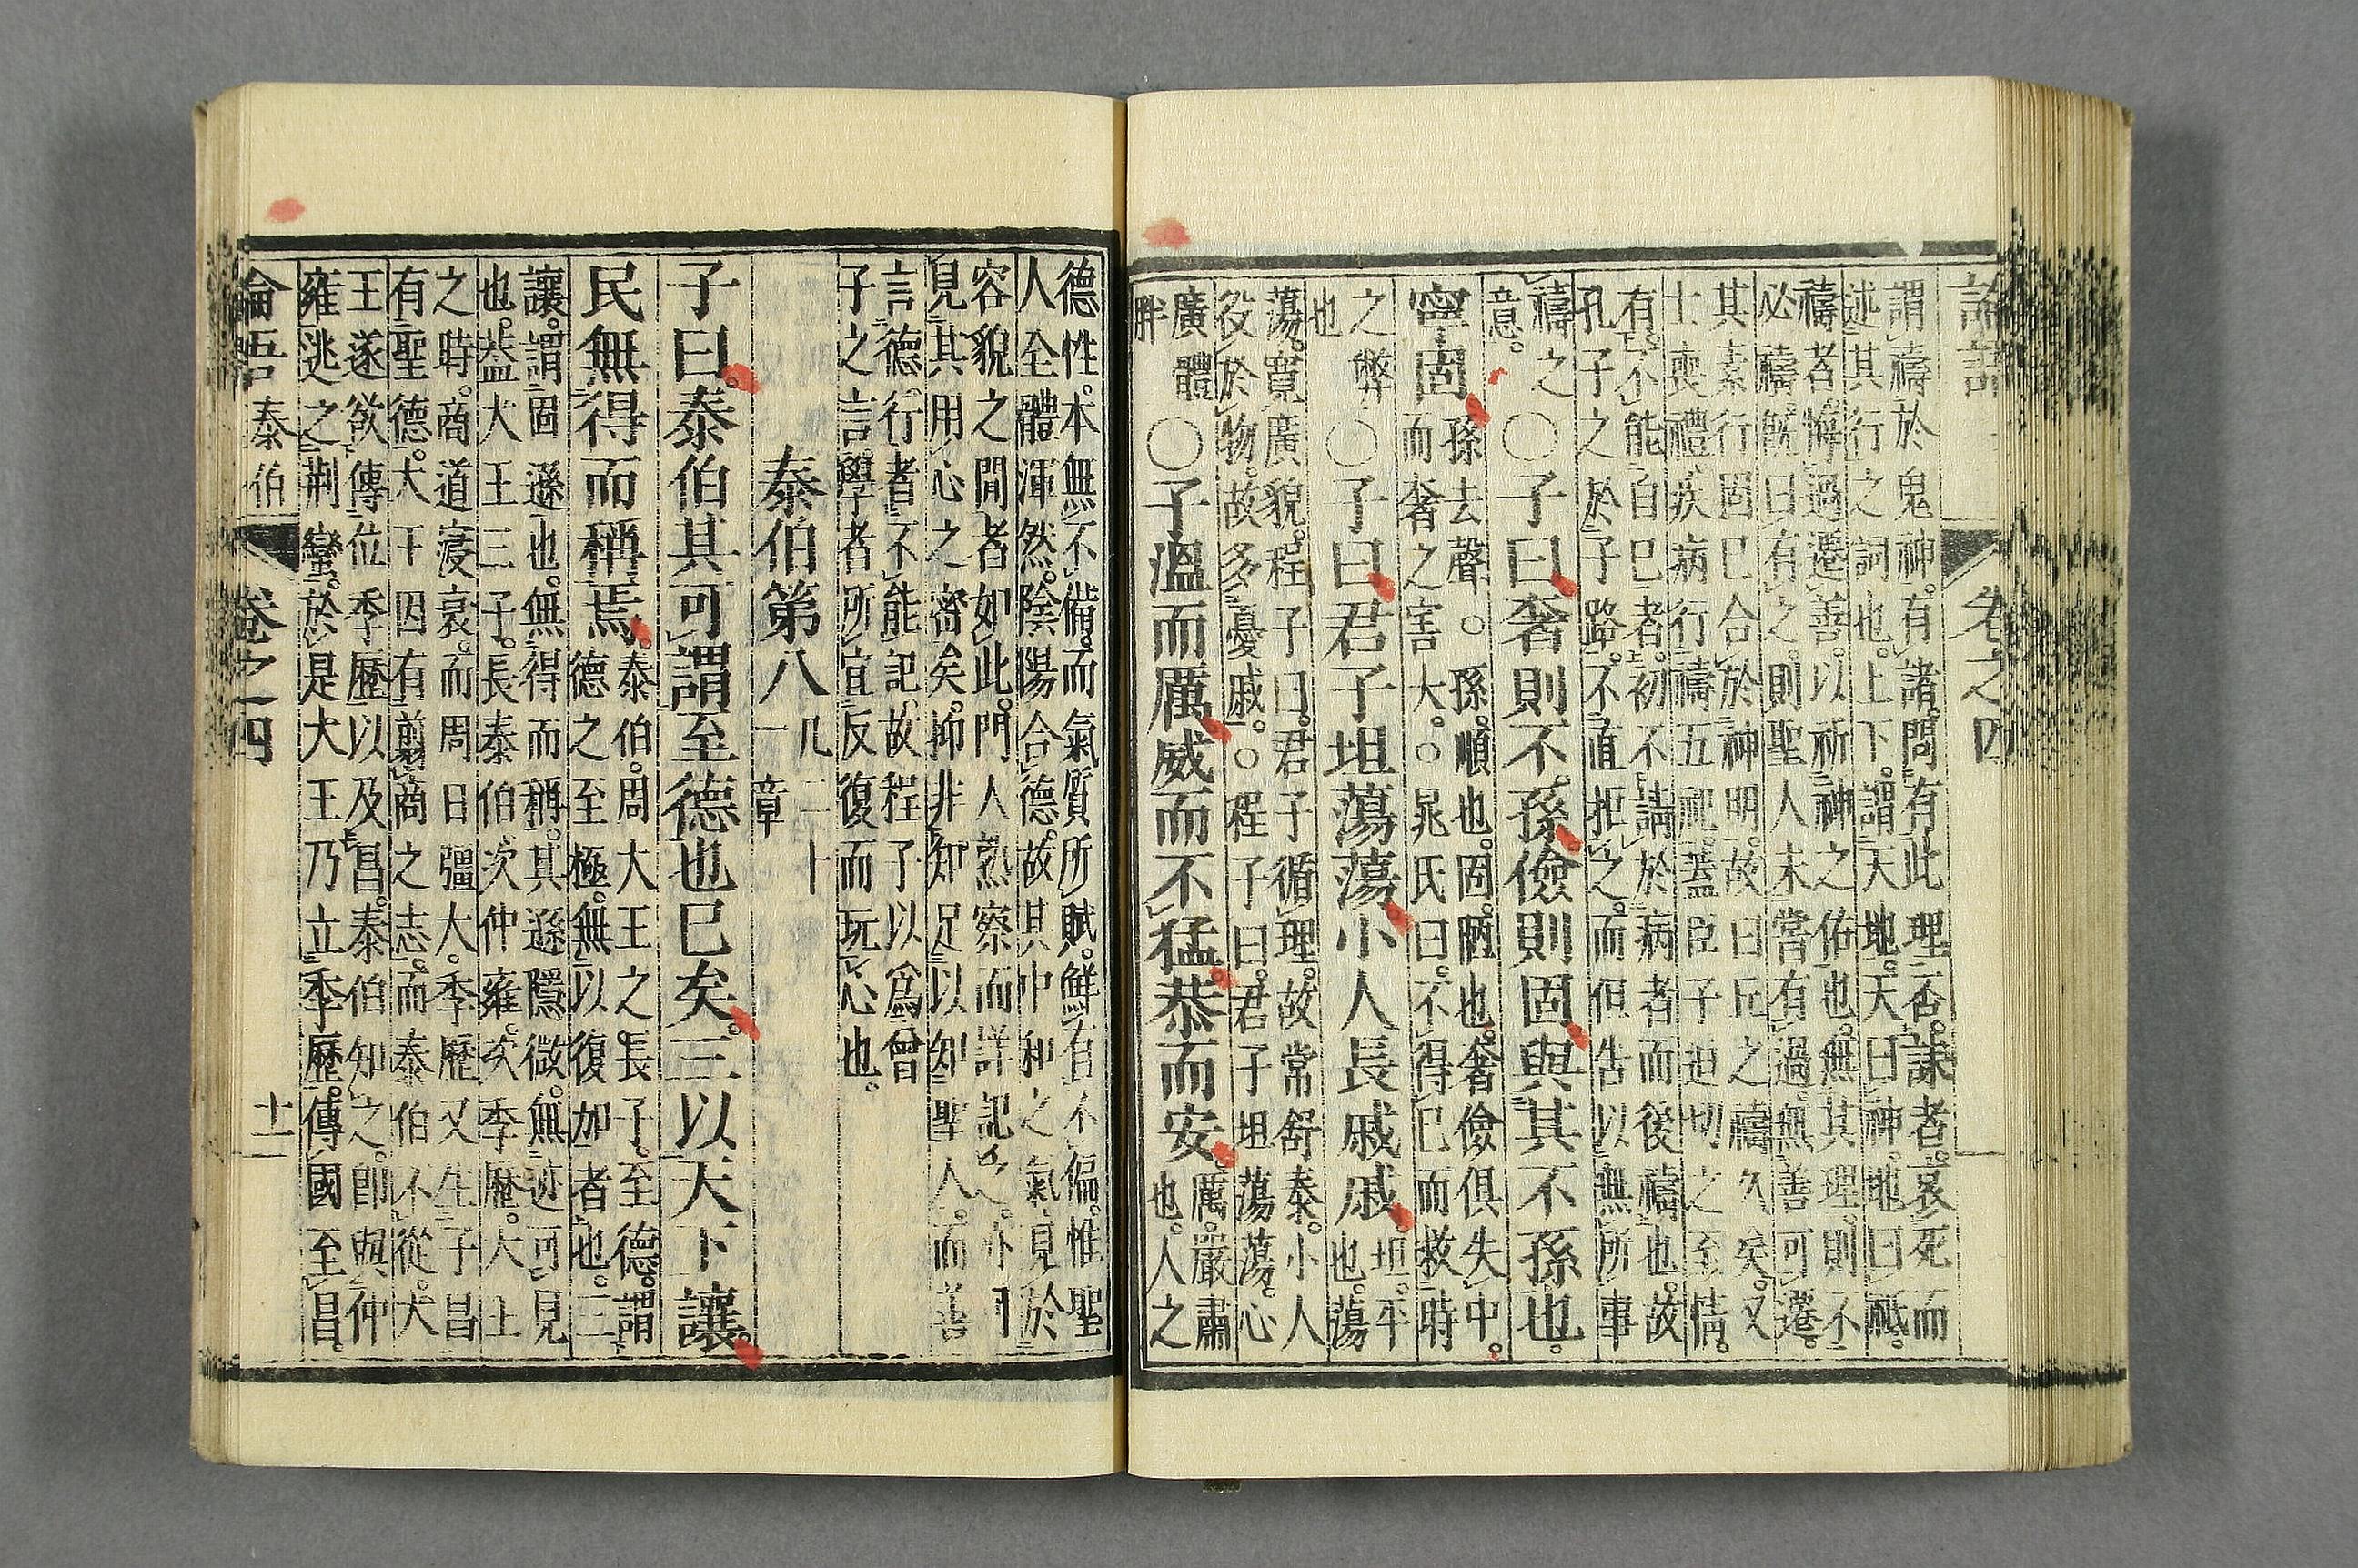 論語
卷之四
謂禱於鬼神。有諸。問有此理否。誄者。哀死而
述其行之詞也。上下。謂天地。天曰神。地曰祗。
禱者。悔過遷善。以祈神之佑也。無其理。則不
必禱。旣曰有之。則聖人未嘗有過。無善可遷。
其素行固已合於神明。故曰丘之禱久矣。又
士喪禮。疾病行禱五祀。蓋臣子迫切之至情。
有不能自已者。初不請於病者而後禱也。故
孔子之於子路。不直拒之。而但告以無所事
禱之
意。
〇子曰。奢則不孫。儉則固。與其不孫也。
寧固。
孫去聲。〇孫。順也。固。陋也。奢儉俱失中。
而奢之害大。〇晁氏曰。不得已而救時
之弊
也
〇子曰。君子坦蕩蕩。小人長戚戚。
坦。平
也。蕩
蕩。寬廣貌。程子曰。君子循理。故常舒泰。小人
役於物。故多憂戚。〇程子曰。君子坦蕩蕩。心
廣體
胖
〇子溫而厲。威而不猛。恭而安。
厲。嚴肅
也。人之
德性。本無不備。而氣質所賦。鮮有不偏。惟聖
人全體渾然。陰陽合德。故其中和之氣。見於
容貌之閒者如此。門人熟察而詳記之。亦可
見其用心之密矣。抑非知足以知聖人。而善
言德行者不能記。故程子以爲曾
子之言。學者所宜反復而玩心也。
泰伯第八
凡二十
一章
子曰。泰伯其可謂至德也已矣。三以天下讓。
民無得而稱焉。
泰伯。周大王之長子。至德。謂
德之至極。無以復加者也。三
讓。謂固遜也。無得而稱。其遜隱微。無迹可見
也。蓋大王三子。長泰伯。次仲雍。次季歷。大王
之時。商道寖衰。而周日彊大。季歷又生子昌
有聖德。大王因有翦商之志。而泰伯不從。大
王遂欲傳位季歷以及昌。泰伯知之。卽與仲
雍逃之荆蠻。於是大王乃立季歷。傳國至昌。
論語 泰伯
卷之四
十一